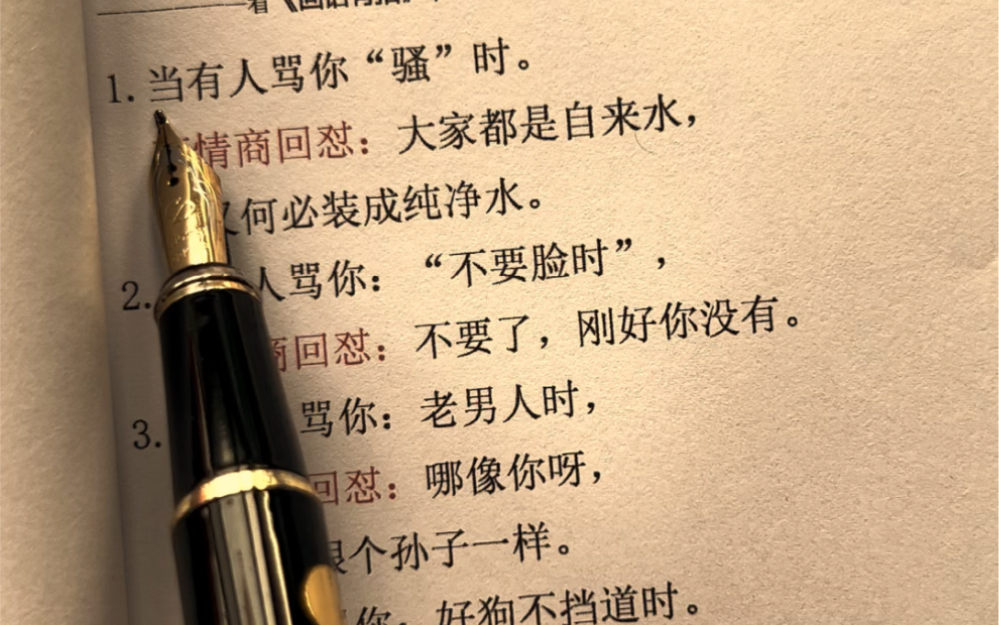 看《回话有招》
1.当有人骂你“骚”时。
情商回怼：大家都是自来水，
又何必装成纯净水。
2.人骂你：“不要脸时”，
商回怼：不要了，刚好你没有。
3.骂你：老男人时，
回怼：哪像你呀，
跟个孙子一样。
你：好狗不挡道时。